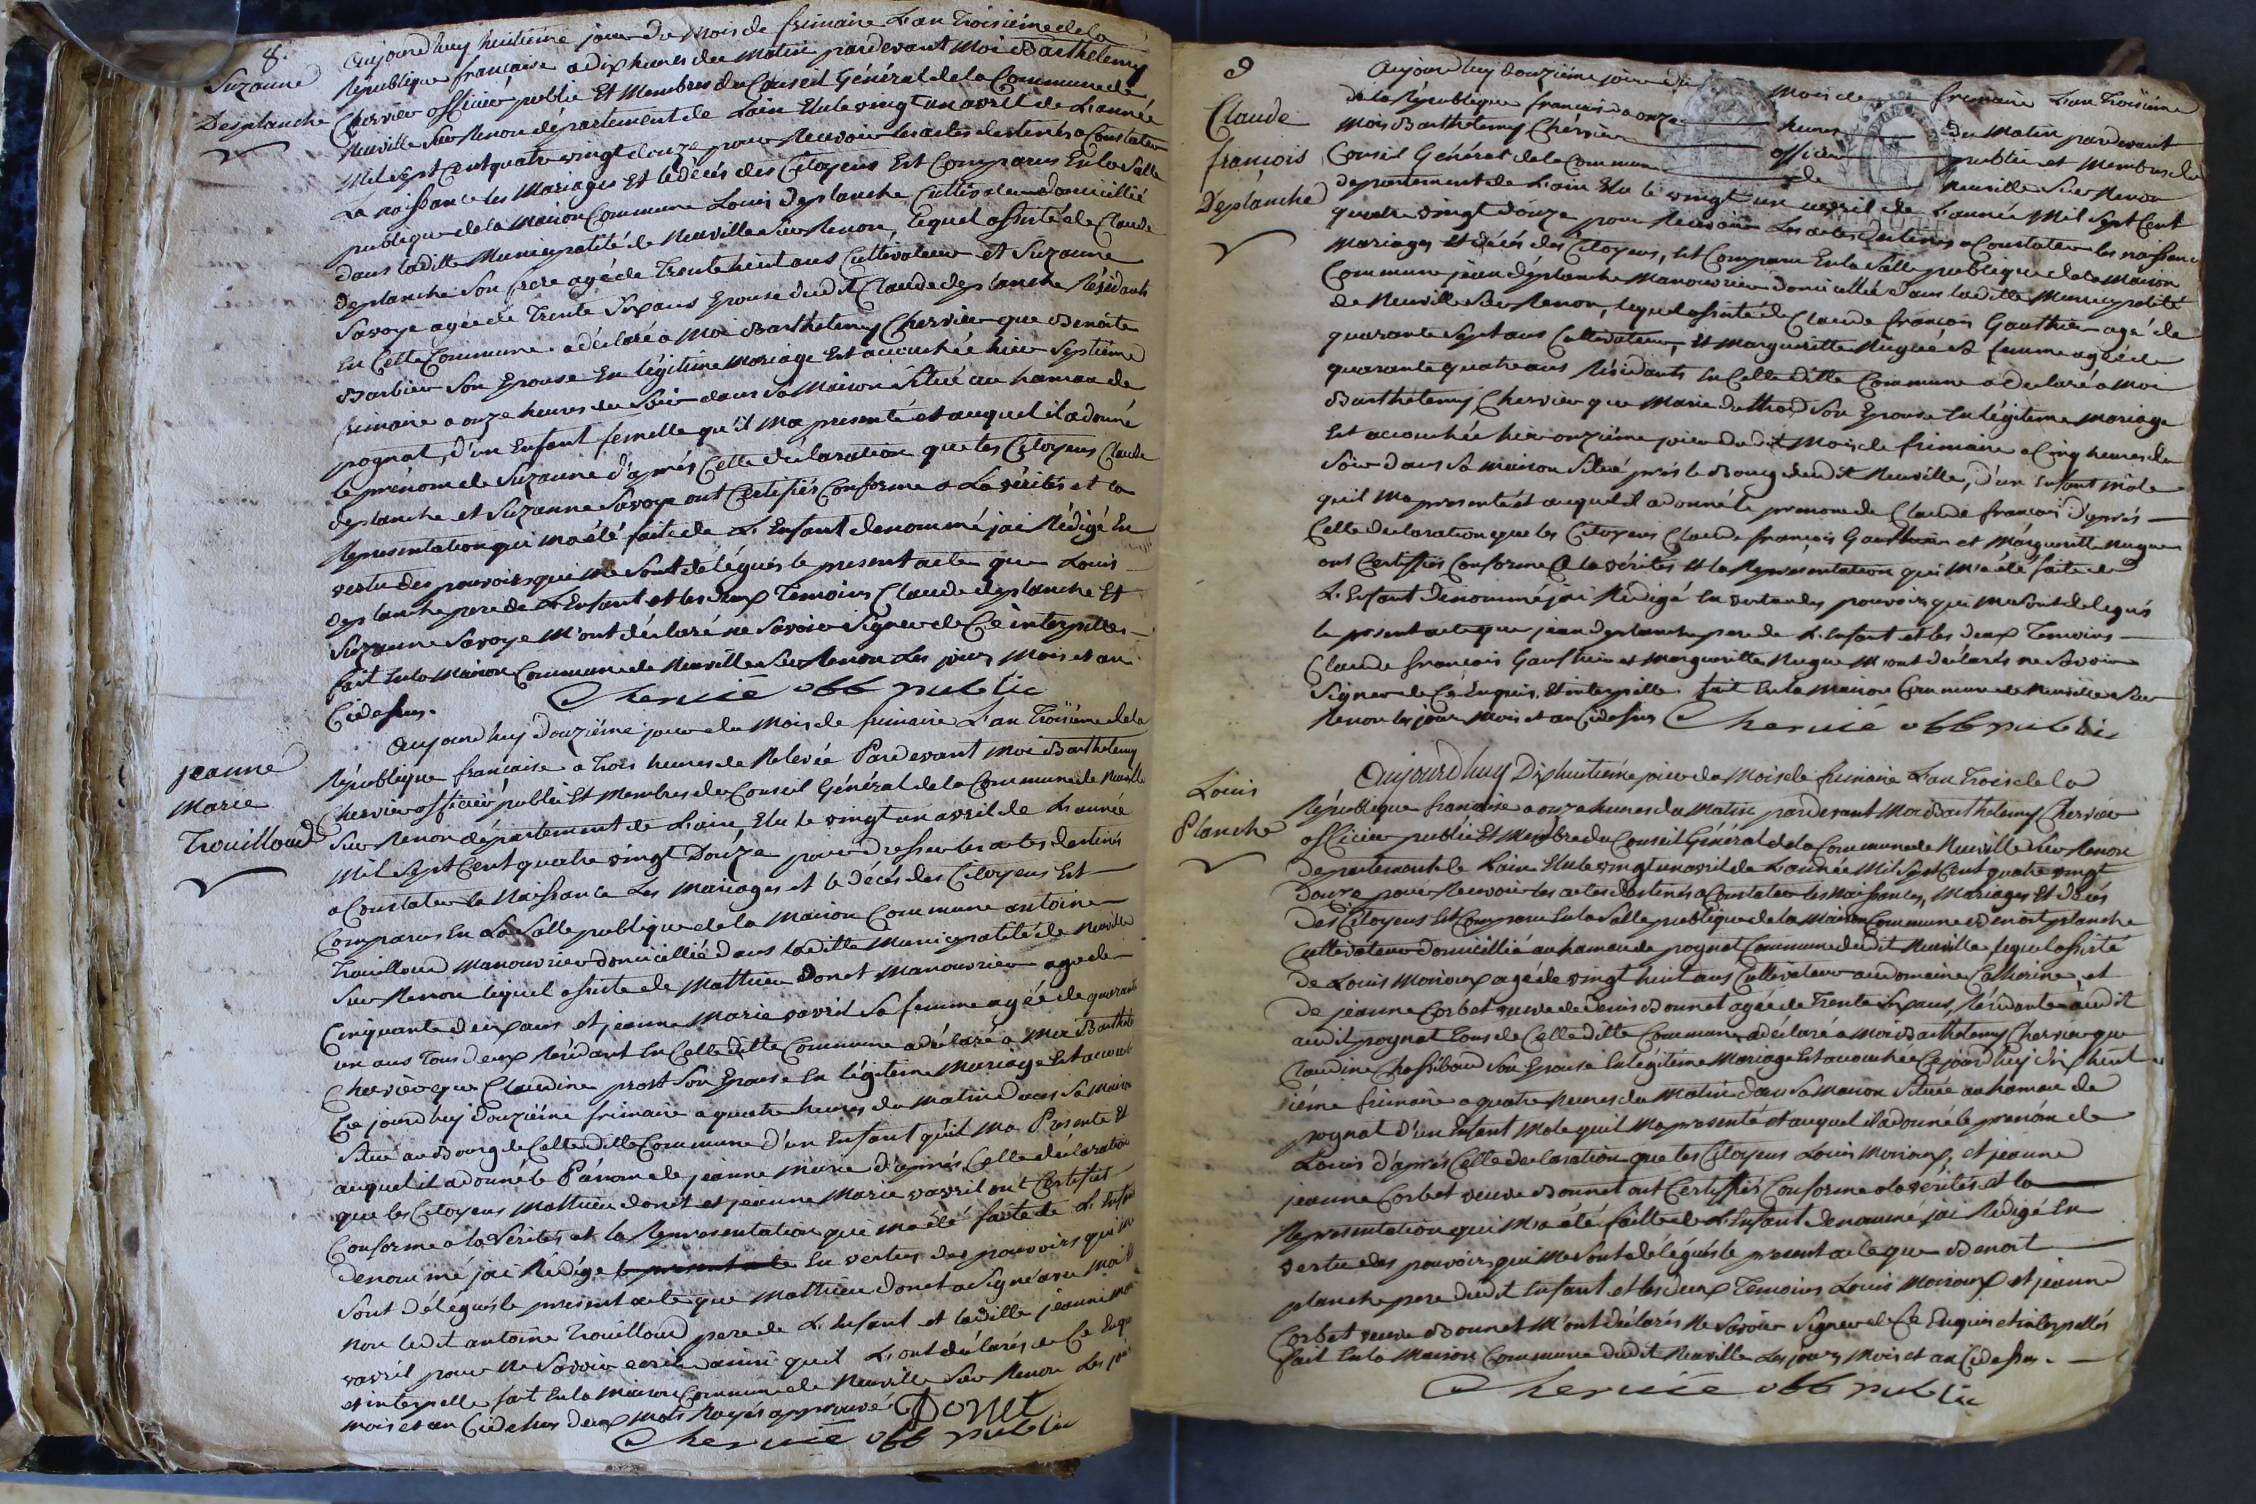 8.
Suzanne
Desplanche
Aujourdhuy huitieme jour du Mois de frimaire L'an Troisiéme de la
République française a dix heures du Matin pardevant Moi Barthelemy
Chervier officier public Et Membres du Conseil Général de la Commune de
Neuville Sur Renon département de Lain Elu le vingt un avril de L'année
Mil Sept Cent quatre vingt douze pour Recevoir les actes destinés a Constater
La naissance les Mariages Et le décés des Citoyens Est Comparus En la Salle
publique de la Maison Commune Louis Deplanche Cultivateur domicillié
dans laditte Municipalité de Neuville Sur Renon, lequel assisté de Claude
Deplanche Son frere agé de Trente huit ans Cultivateur et Suzanne
Savoye agée de Trente Six ans Epouse dudit Claude deplanche Résidants
En Cette Commune a déclaré a Moi Barthelemy Chervier que Benoite
Barbier Son Epouse En légitime Mariage Est accouchée hier Septiéme
frimaire a onze heures du Soir dans Sa Maison Situé au hamau de
pognat, d'un Enfant femelle qu'il Ma presenté et auquel il a donné
le prénom de Suzanne d'aprés Cette déclaration que les Citoyens Claude
deplanche et Suzanne Savoye ont Certifiés Conforme a La vérités et la
Representation qui ma été faite de L'Enfant denommé jai Rédigé En
vertu des pouvoirs qui me Sont délégués le present acte que Louis
deplanche pere de L'Enfant et les deux Temoins Claude deplanche Et
Suzanne Savoye M'ont déclaré ne Savoir Signer de Ce interpellés
fait En la Maison Commune de Neuville Sur Renon Les jour, Mois et an
Cidessus.
Chervié off public
jeanne
Marie
Trouilloud
Aujourdhuy douziéme jour du Mois de frimaire L'an Troisiéme de la
République française a Trois heures de Relevée Pardevant Moi Barthelemy
Chervier officier public Et Membres du Conseil Général de la Commune de Neuville
Sur Renon département de Lain, Elu le vingt un avril de L'année
Mil Sept Cent quatre vingt Douze pour dresser les actes destinés
a Constater la Naissance Les Mariages et le décés des Citoyens Est
Comparus En La Salle publique de la Maison Commune antoine
Trouilloud Manouvrier domicillié dans laditte Municipalité de Neuville
Sur Renon lequel assisté de Mathieu Donet Manouvrier agé de
Cinquante deux ans et jeanne Marie vavril Sa femme agée de quarante
un ans Tous deux Résidant En Celle ditte Commune a déclaré a Moi Barthele
Chervier que Claudine prost Son Epouse En légitime Mariage Est accouché
Ce jourdhuy douziéme frimaire a quatre heures du Matin dans Sa Maison
Situé au Bourg de Celle ditte Commune d'un Enfant qu'il Ma Presenté Et
auquel il a donné le Pénom de jeanne Marie d'aprés Cette déclaration
que les Citoyens Mathieu donet et jeanne Marie vavril ont Certifiés
Conforme a la vérités et la Representation qui ma été faite de L'Enfant
denommé jai Rédigé le present acte En vertus des pouvoirs qui me
Sont délégués le present acte que Mathieu donet a Signé avec Moi
Non ledit antoine Trouilloud pere de L'Enfant et laditte jeanne Marie
vavril pour Ne Savoir ecrire ainsi quil L'ont déclarés de Ce Enquis
et interpelle fait En la Maison Commune de Neuville Sur Renon Les jour
Mois et an Cidessus deux Mots Rayés approuvé Donet
Chervié off public
9
Claude
françois
Deplanche
Aujourdhuy douziéme jour du Mois de frimaire L'an Troisiéme
de la République française a onze heures du Matin pardevant
Moi Barthelemy Chervier officier public et Membres du
Conseil Général de la Commune de Neuville Sur Renon
departement de Lain Elu le vingt un avril de L'année Mil Sept Cent
quatre vingt douze pour Recevoir Les actes destinés a Constater les naissances
Mariages et décés des Citoyens, Est Comparu En la Salle publique de la Maison
Commune jean deplanche Manouvrier domicillié dans laditte Municipalité
de Neuville Sur Renon, lequel assisté de Claude françois Gauthier agé de
quarante Sept ans Cultivateur, Et Margueritte Nugue Sa femme agée de
quarante quatre ans Résidants En Celle ditte Commune a declaré a Moi
Barthelemy Chervier que Marie duthod Son Epouse En légitime Mariage
Est accouchée hier onziéme jour dudit Mois de frimaire a Cinq heures du
Soir dans Sa Maison Situé prés le Bourg dudit Neuville, d'un Enfant Mâle
quil Ma presenté et auquel il a donné le prenom de Claude françois d'aprés
Cette declaration que les Citoyens Claude françois Gauthier et Margueritte Nugue
ont Certifiés Conforme a la vérités Et la Representation qui M'a été faite de
L'Enfant denommé jai Rédigé En vertu des pouvoirs qui me Sont delegués
le present acte que jean deplanche pere de L'Enfant et les deux Temoins
Claude françois Gauthier et Margueritte Nugue M'ont déclarés ne Savoir
Signer de Ce Enquis, Et interpelle. fait En la Maison Commune de Neuville Sur
Renon les jour Mois et an Cidessus Chervié off public
Louis
Planche
Aujourdhuy Dix huitiéme jour du Mois de frimaire L'an Trois de la
République française a onze heures du Matin pardevant Moi Barthelemy Chervier
officier public Et Membre du Conseil Général de la Commune de Neuville Sur Renon
departement de Lain Elu le vingt un avril de L'année Mil Sept Cent quatre vingt
douze pour Recevoir les actes destinés a Constater les Naissances, Mariages Et décés
des Citoyens Est Comparu En la Salle publique de la Maison Commune Benoit planche
Cultivateur domicillié au hamau de pognat Commune dudit Neuville, lequel assisté
de Louis Moiroux agé de vingt huit ans Cultivateur au domaine Catherine, et
de jeanne Corbet veuve de Denis Bonnet agée de Trente Six ans, Résidante audit
audit pognat Tous de Celle ditte Commune, a déclaré a Moi Barthelemy Chervier que
Claudine Chassibaud Son Epouse En légitime Mariage Est accouchée Ce jourdhuy dix huit
iéme frimaire a quatre heures du Matin dans Sa Maison Située au hamau de
pognat d'un Enfant Male quil Ma presenté et auquel il a donné le prenom de
Louis d'aprés Cette declaration que les Citoyens Louis Moiroux, et jeanne
jeanne Corbet veuve Bonnet ont Certifiés Conforme a la vérités et la
Representation qui M'a été faitte de L'Enfant denommé jai Redigé En
vertu des pouvoirs qui Me Sont délégués le present acte que Benoit
planche pere dudit Enfant et les deux Temoins Louis Moiroux et jeanne
Corbet veuve Bonnet M'ont déclarés Ne Savoir Signer de Ce Enquis et interpellés
fait En la Maison Commune dudit Neuville Les jour, Mois et an Cidessus.
Chervié off public